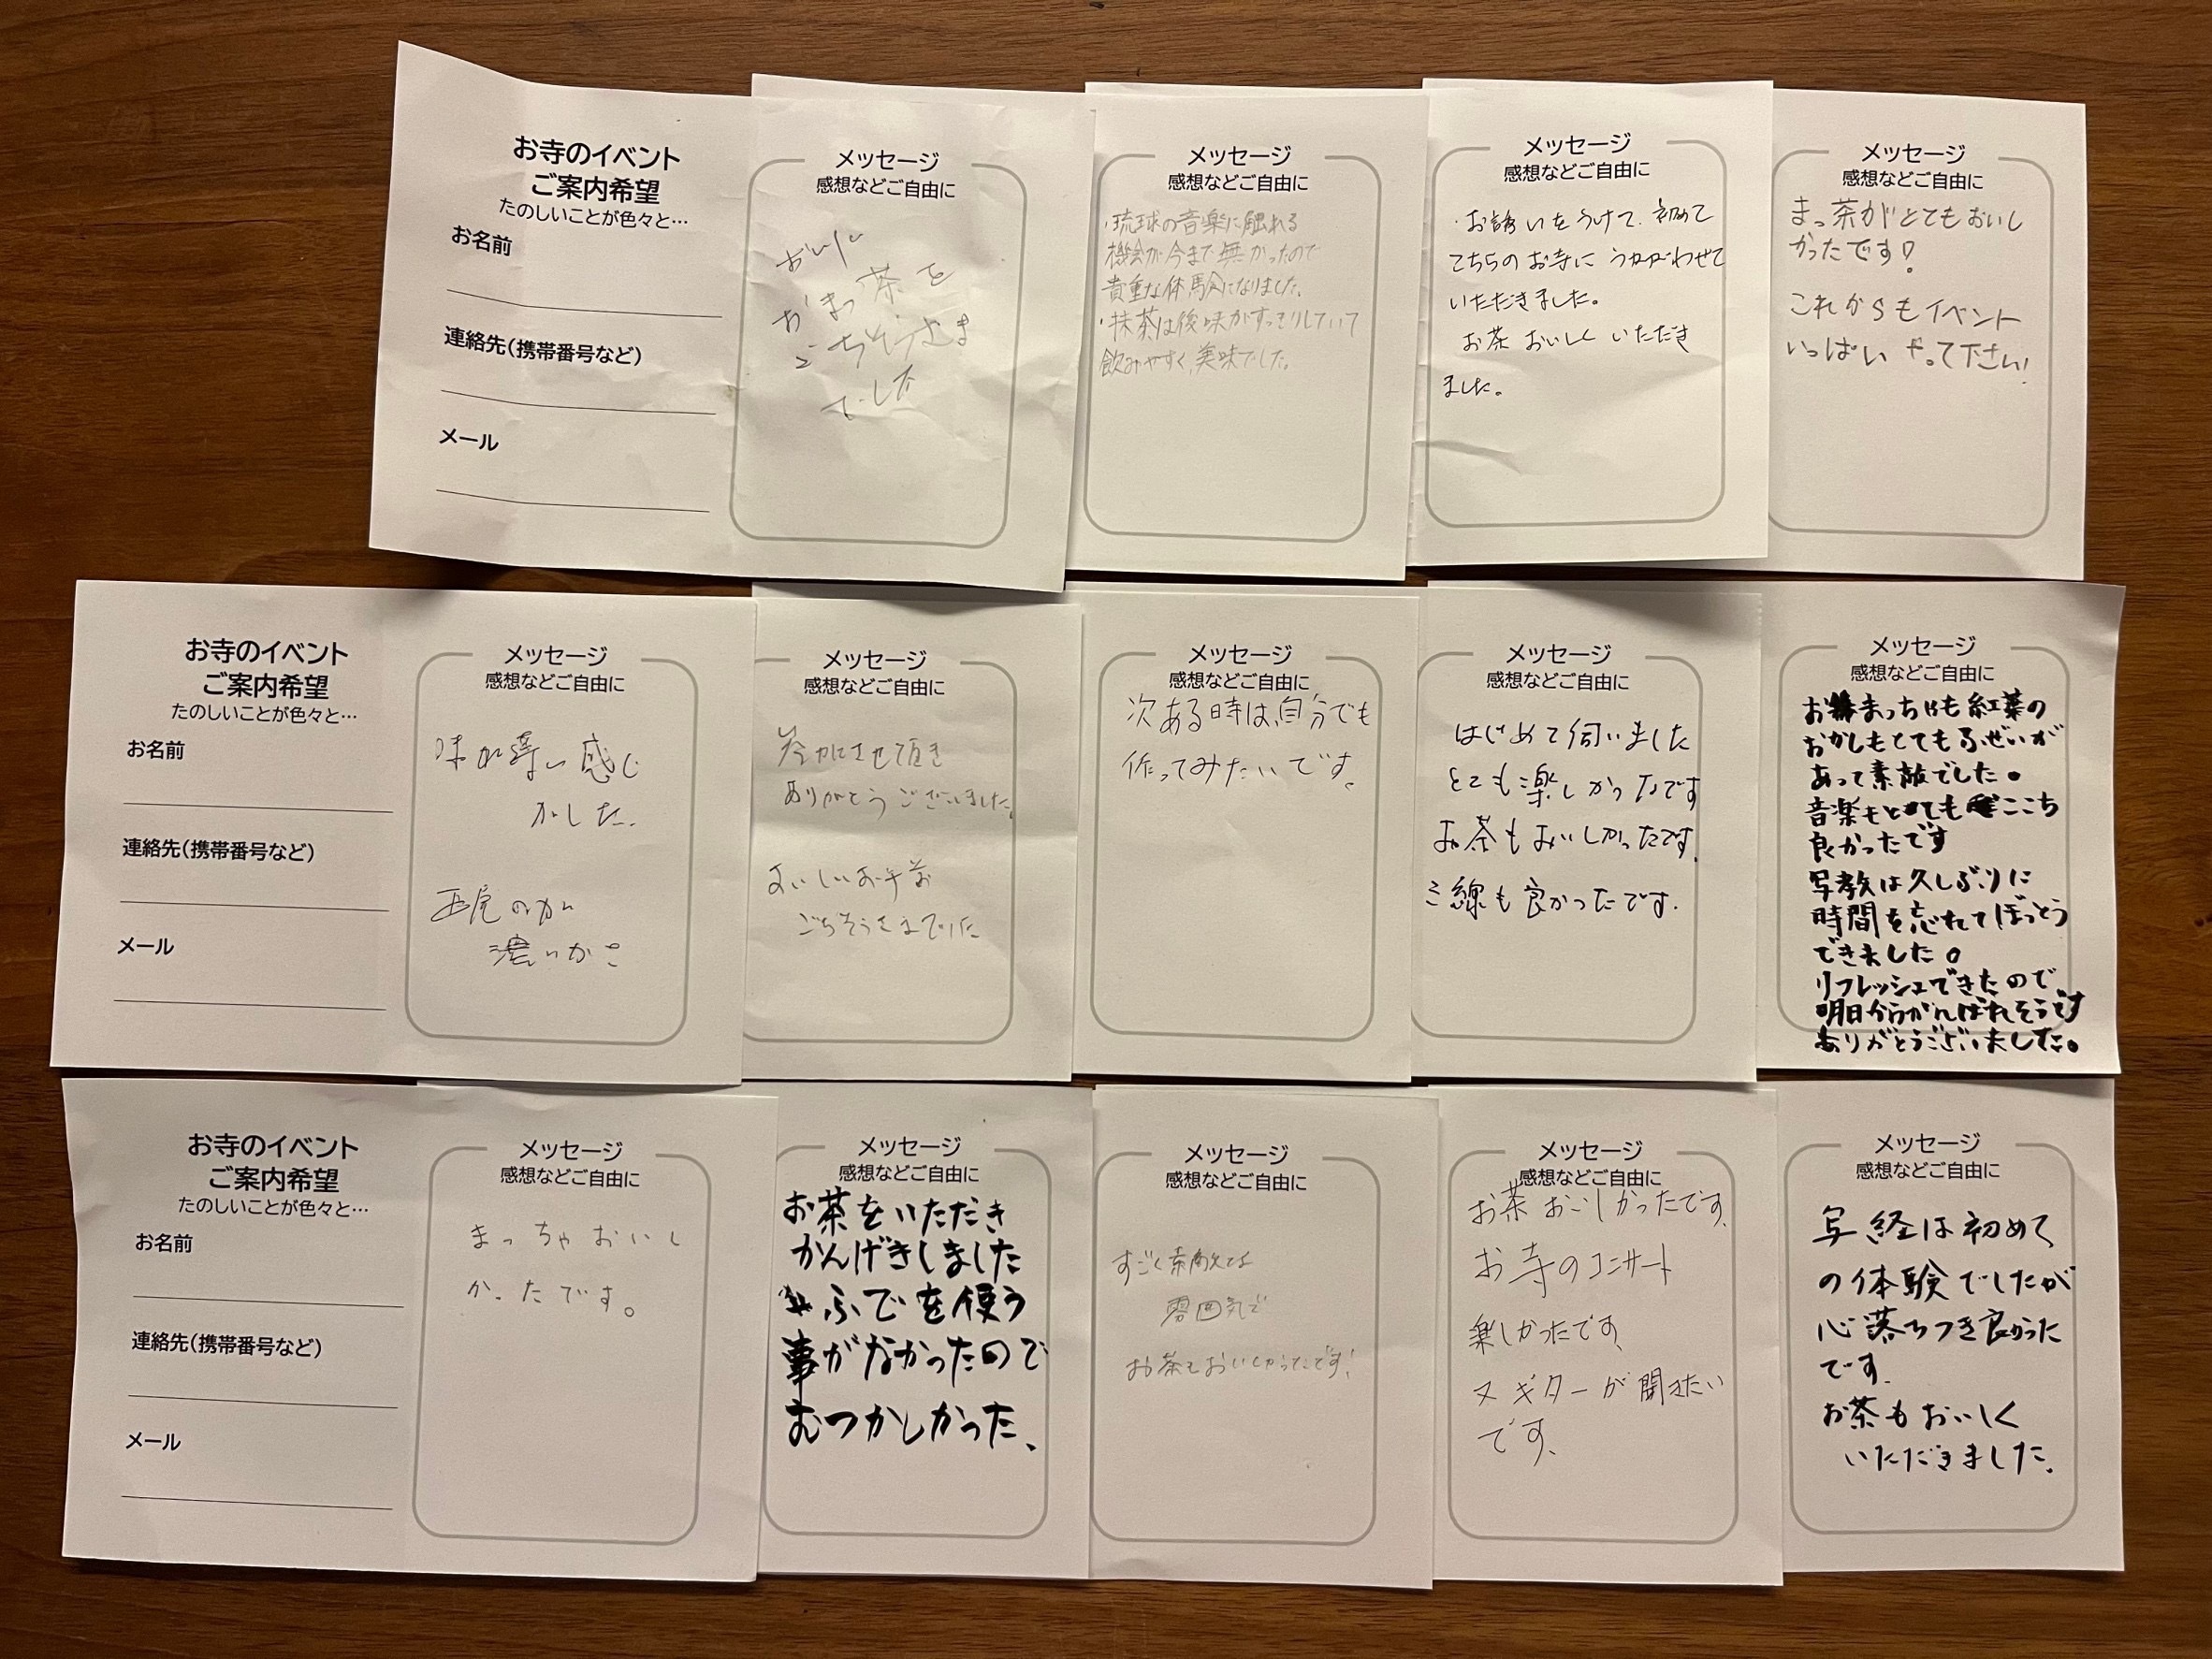 お寺のイベント
ご案内希望
たのしいことが色々と…
お名前
連絡先(携帯番号など)
メール
メッセージ
感想などご自由に
おいしい
おまっ茶を
ごちそうさま
でした
メッセージ
感想などご自由に
・琉球の音楽に触れる
機会が今まで無かったので
貴重な体験になりました。
・抹茶は後味がすっきりしていて
飲みやすく、美味でした。
メッセージ
感想などご自由に
・お誘いをうけて、初めて
こちらのお寺に うかがわせて
いただきました。
お茶 おいしく いただき
ました。
メッセージ
感想などご自由に
まっ茶がとてもおいし
かったです!
これからもイベント
いっぱい やって下さい!
お寺のイベント
ご案内希望
たのしいことが色々と…
お名前
連絡先(携帯番号など)
メール
メッセージ
感想などご自由に
味が薄い感じ
がした。
西尾のが
濃いかも
メッセージ
感想などご自由に
参加させて頂き
ありがとうございました。
おいしいお手前
ごちそうさまでした
メッセージ
感想などご自由に
次ある時は、自分でも
作ってみたいです。
メッセージ
感想などご自由に
はじめて伺いました
とても楽しかったです
お茶もおいしかったです。
三線も良かったです。
メッセージ
感想などご自由に
おまっちゃも紅葉の
おかしもとてもふぜいが
あって素敵でした。
音楽もとても ここち
良かったです
写教は久しぶりに
時間を忘れてぼっとう
できました。
リフレッシュできたので
明日からがんばれそうです
ありがとうございました。
お寺のイベント
ご案内希望
たのしいことが色々と…
お名前
連絡先(携帯番号など)
メール
メッセージ
感想などご自由に
まっちゃおいし
かったです。
メッセージ
感想などご自由に
お茶をいただき
かんげきしました
ふでを使う
事がなかったので
むつかしかった、
メッセージ
感想などご自由に
すごく素敵な
雰囲気で
お茶もおいしかったです!
メッセージ
感想などご自由に
お茶おいしかったです。
お寺のコンサート
楽しかったです、
又ギターが聞きたい
です、
メッセージ
感想などご自由に
写経は初めて
の体験でしたが
心落ちつき良かった
です.
お茶もおいしく
いただきました.